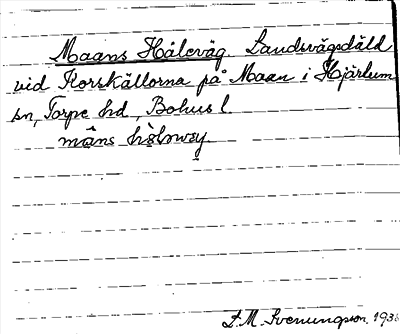 Maans Håleväg Landsvägsdäld
vid Korskällorna på Maan i Hjärtum
sn, Torpe hd, Bohus l.
måns
D.M. Svenungsson, 193